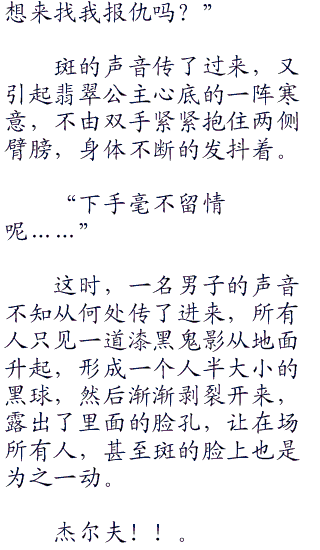 想来找我报仇吗？”
斑的声音传了过来，又
引起翡翠公主心底的一阵寒
意，不由双手紧紧抱住两侧
臂膀，身体不断的发抖着。
“下手毫不留情
呢……”
这时，一名男子的声音
不知从何处传了进来，所有
人只见一道漆黑鬼影从地面
升起，形成一个人半大小的
黑球，然后渐渐剥裂开来，
露出了里面的脸孔，让在场
所有人，甚至斑的脸上也是
为之一动。
杰尔夫！！。